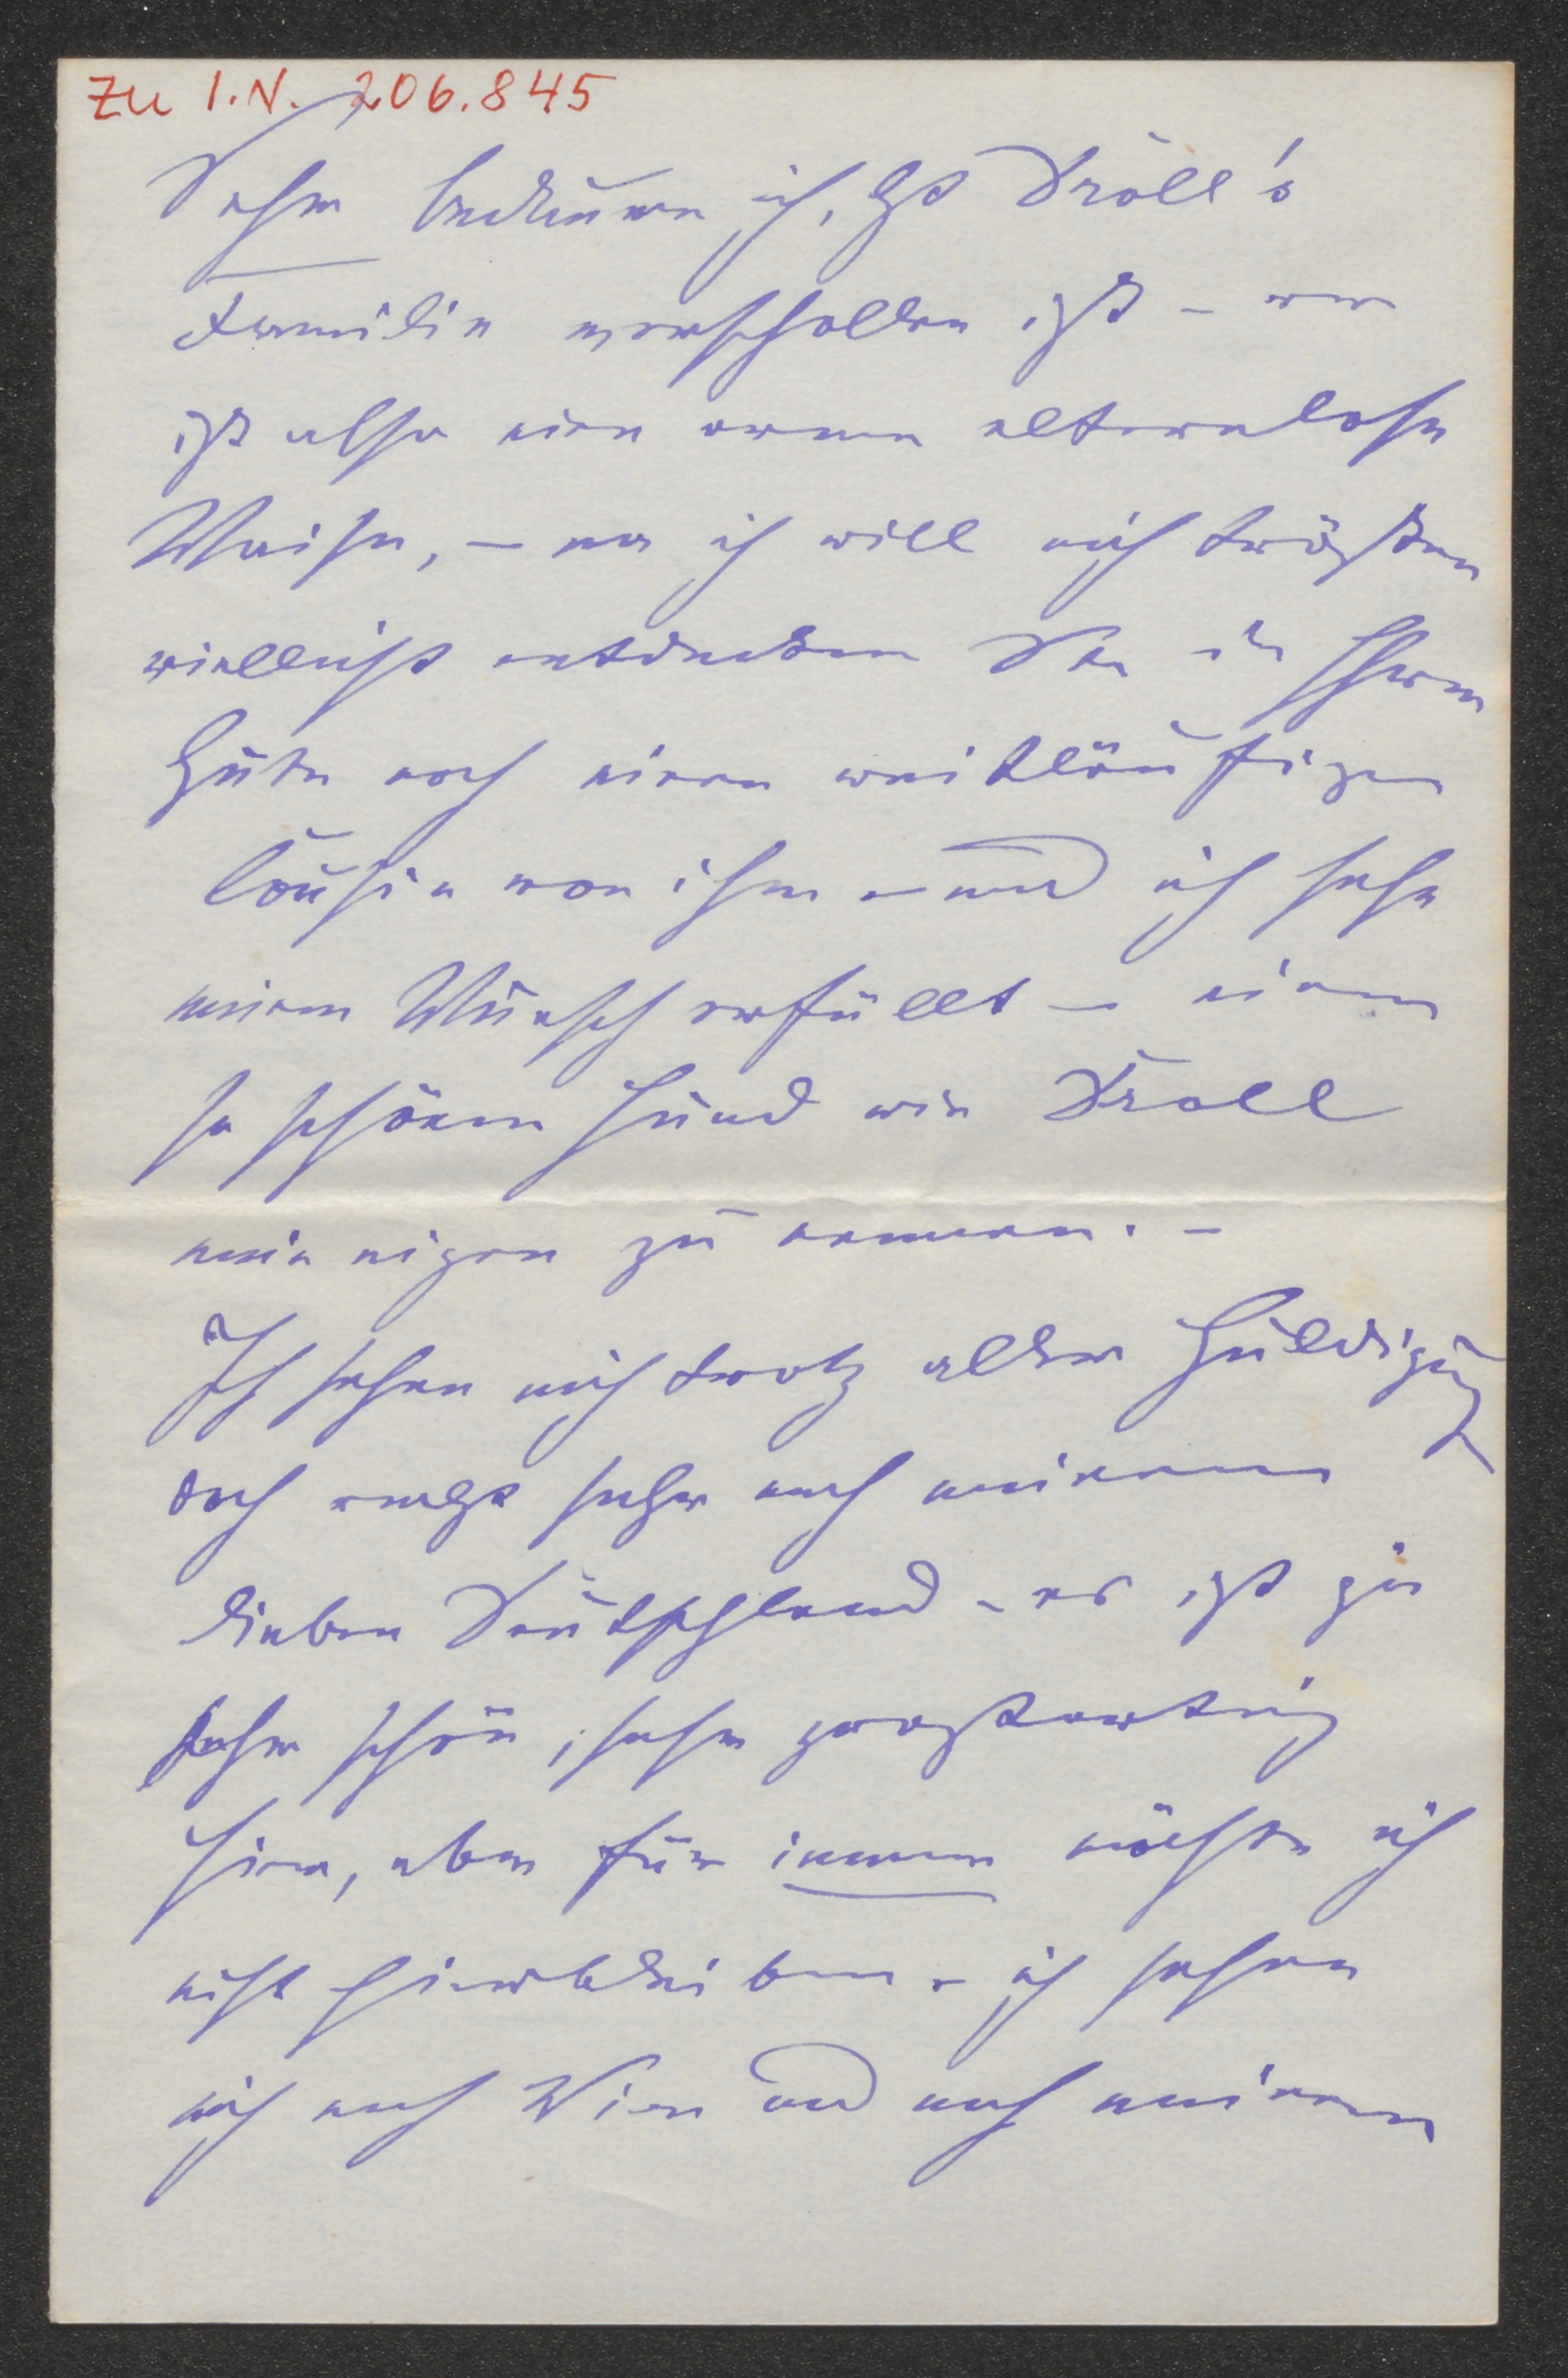 Zu I.N. 206.845
Sehr bedaure ich, daß Droll's
Familie verschollen ist – er
ist also eine arme elternlose
Waise, – na ich will mich trösten
vielleicht entdecken Sie in Ihrer
Güte noch einen weitläufigen
Cousin von ihm – und ich sehe
meinen Wunsch erfüllt – einen
so schönen Hund wie Droll
mein eigen zu nennen. –
Ich sehne mich trotz aller Huldigung
doch recht sehr nach meinem
lieben Deutschland – es ist zu
sehr schön, sehr großartig
hier, aber für immer möchte ich
nicht hierbleiben – ich sehne
mich nach Wien und nach meinem